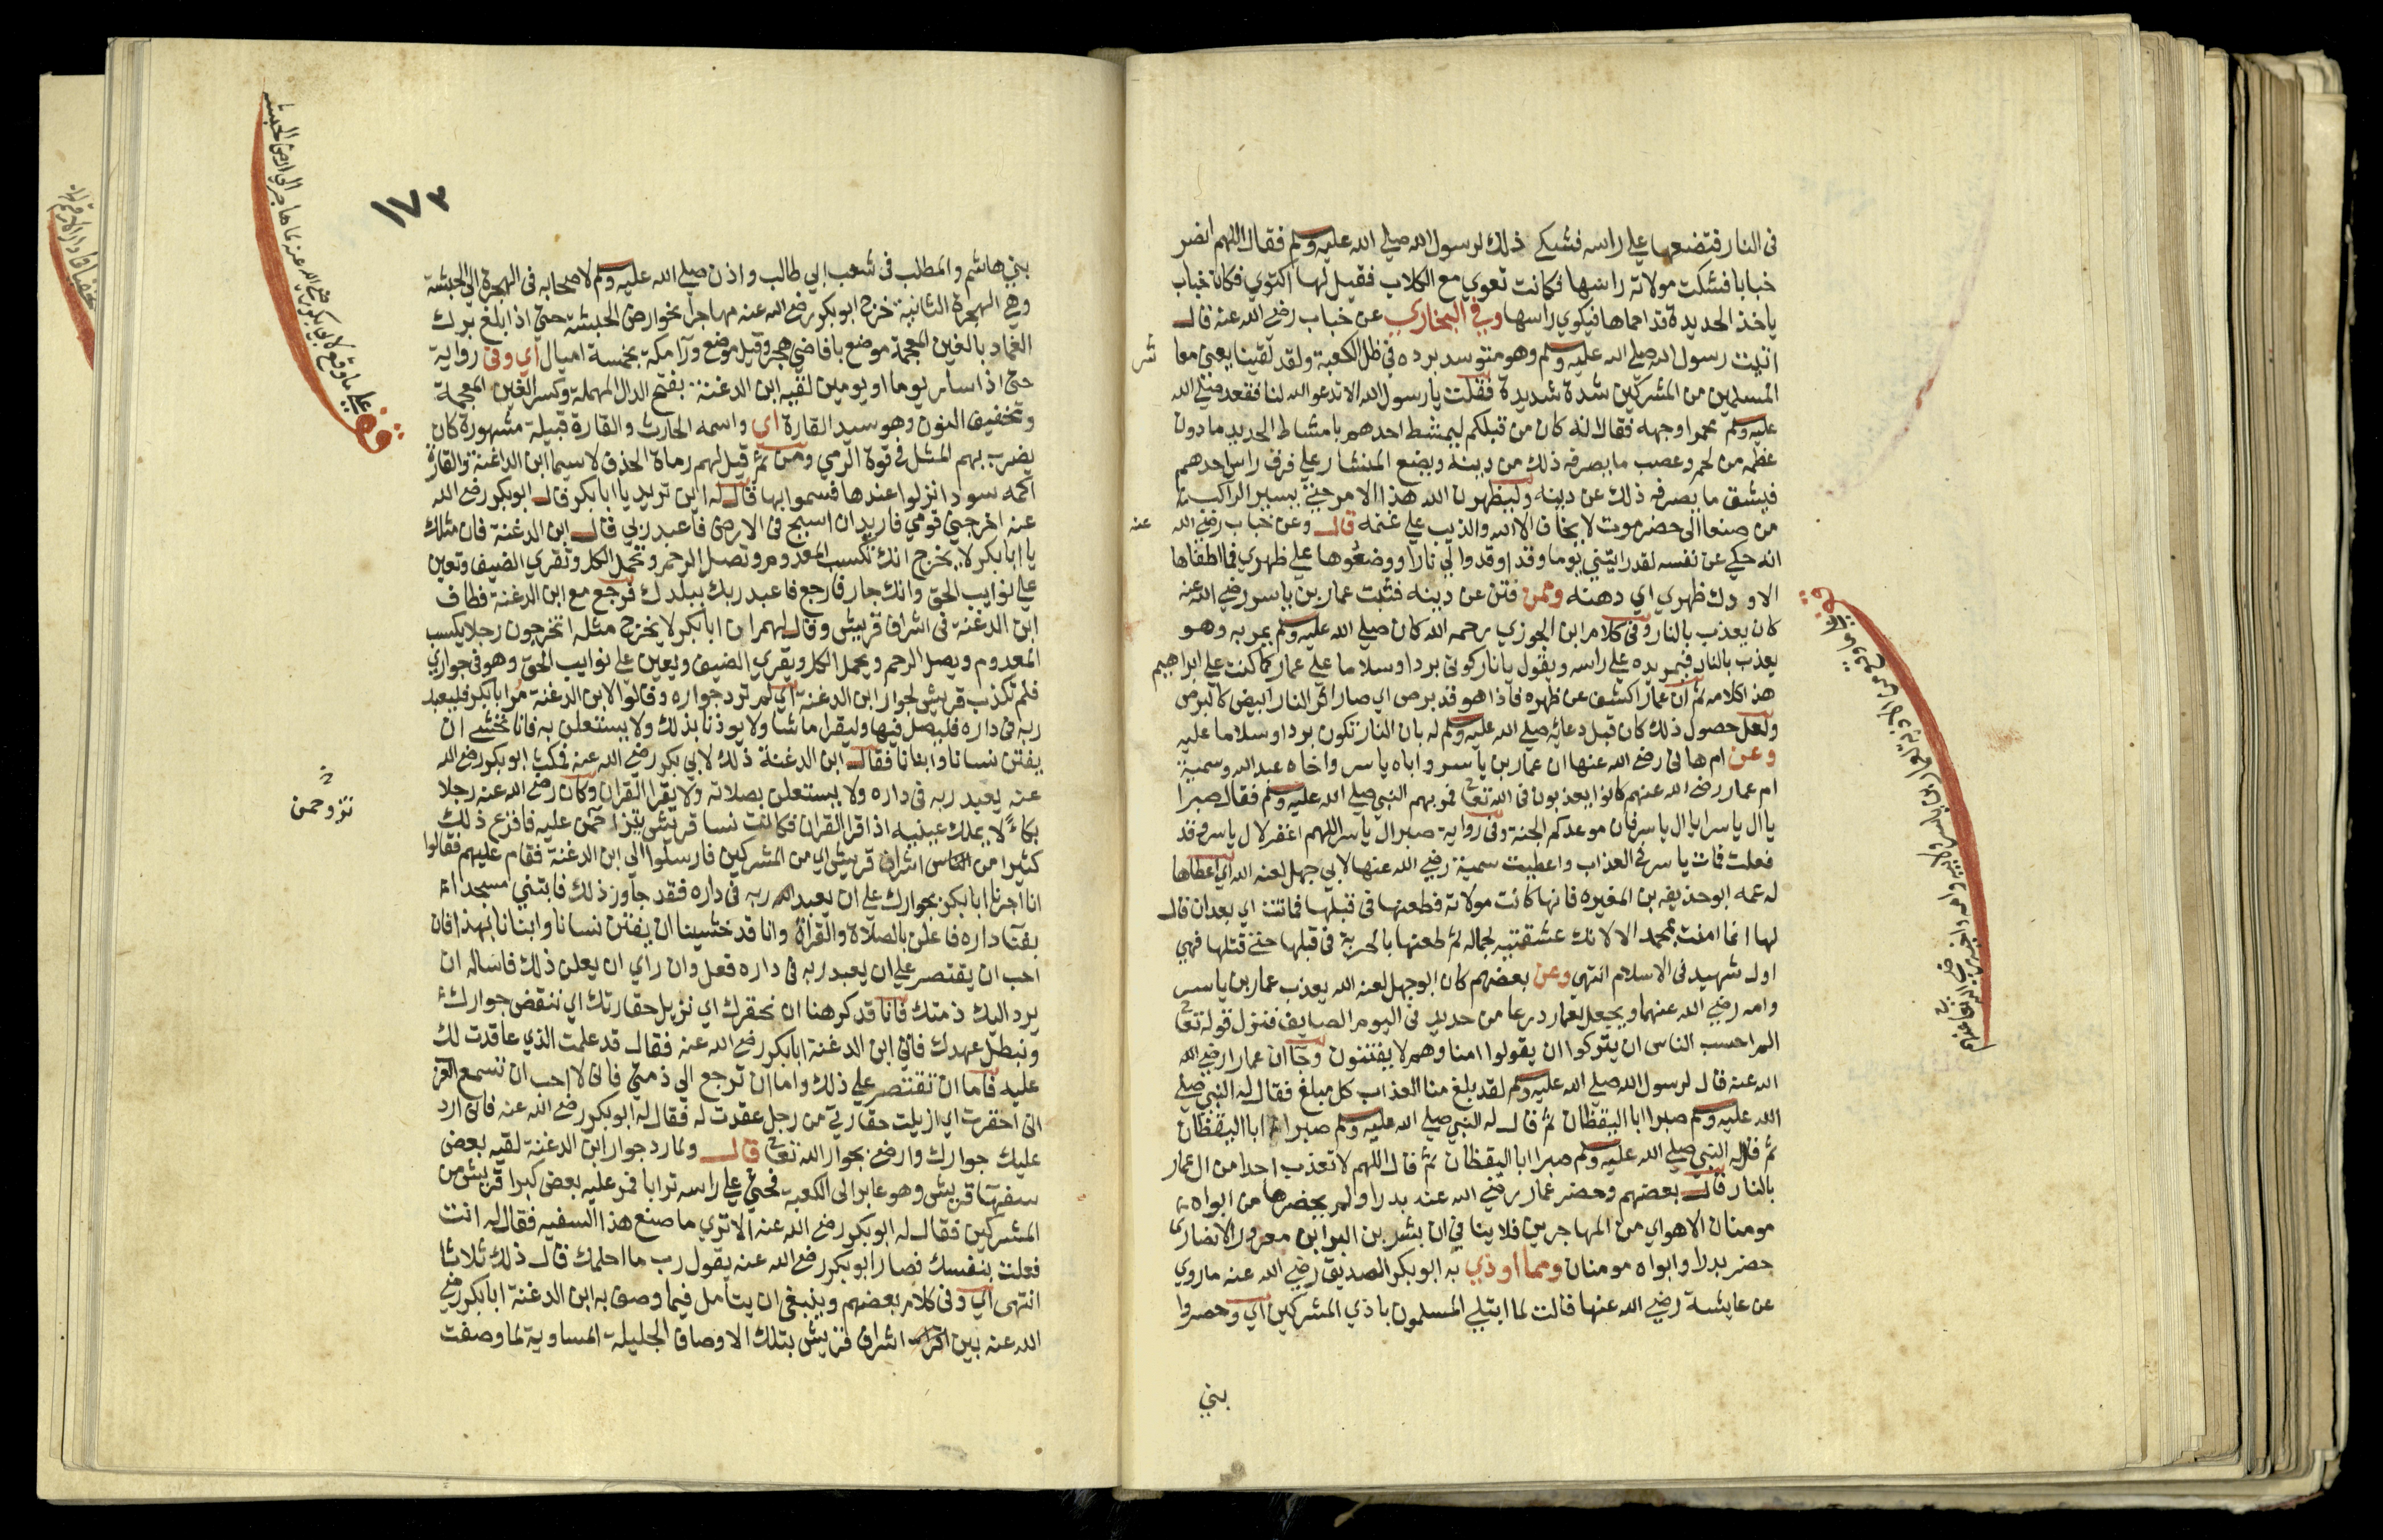 في النار فتضعها علي راسه فشكي ذلك لرسول الله صلي الله عليه وسلم فقال اللهم انصر
خبابا فشكت مولاته راسها فكانت تعوي مع الكلاب فقيل لها اكتوي فكان خباب
ياخذ الحديدة قد احماها فيكوي راسها وفي البخاري عن خباب رضي الله عنه قال
اتيت رسول الله صلي الله عليه وسلم وهو متوسد برده في ظل الكعبة ولقد لقينا يعني معاشر
المسلمين من المشركين شدة شديدة فقلت يا رسول الله الا تدعو الله لنا فقعد صلي الله
عليه وسلم محمرا وجهه فقال انه كان من قبلكم ليمشط احدهم بامشاط الحديد ما دون
عظمه من لحم وعصب ما يصرفه ذلك عن دينه ويضع المنشار علي فرق راس احدهم
فيشق ما يصرفه ذلك عن دينه وليظهرن الله هذا الامر حتي يسير الراكب
من صنعا الى حضرموت لا يخاف الا الله والذيب علي غنمه قال وعن خباب رضي الله عنه
انه حكي عن نفسه لقد رايتني يوما وقد اوقدوا لي نارا ووضعوها علي ظهري فما اطفاها
الا ودك ظهري اي دهنه وممن فتن عن دينه فثبت عمار بن ياسر رضي الله عنه
كان يعذب بالنار وفي كلام ابن الجوزي رحمه الله كان صلي الله عليه وسلم يمر به وهو
يعذب بالنار فيمر يده علي راسه ويقول يا نار كوني بردا وسلاما علي عمار كما كنت علي ابراهيم
هذا كلامه ثم ان عمار اكشف عن ظهره فاذا هو قد برص اي صار اثر النار ابيض كالبرص
ولعل حصول ذلك كان قبل دعائه صلي الله عليه وسلم له بان النار تكون بردا وسلاما عليه
وعن ام هاني رضي الله عنها ان عمار بن ياسر واباه ياسر واخاه عبد الله وسمية
ام عمار رضي الله عنهم كانوا يعذبون في الله تعالى فمر بهم النبي صلي الله عليه وسلم فقال صبرا
يا ال ياسر يا ال ياسر فان موعدكم الجنة وفي رواية صبرا ال ياسر اللهم اغفر لال ياسر وقد
فعلت فمات ياسر في العذاب واعطيت سمية رضي الله عنها لابي جهل لعنه الله اي اعطاها
له عمه ابو حذيفه بن المغيره فانها كانت مولاته فطعنها في قبلها فماتت اي بعد ان قال
لها انما امنت بمحمد الا لانك عشقتيه لجماله ثم طعنها بالحربة في قبلها حتي قتلها فهي
اول شهيد في الاسلام انتهي وعن بعضهم كان ابو جهل لعنه الله يعذب عمار بن ياسر
وامه رضي الله عنهما ويجعل لعمار درعا من حديد في اليوم الصايف فنزل قوله تعالى
الم احسب الناس ان يتركوا ان يقولوا امنا وهم لا يفتنون وجا ان عمارا رضي الله
الله عنه قال لرسول الله صلي الله عليه وسلم لقد بلغ منا العذاب كل مبلغ فقال له النبي صلي
الله عليه وسلم صبرا ابا اليقظان ثم قال له النبي صلي الله عليه وسلم صبرا ابا اليقظان
ثم قال له النبي صلي الله عليه وسلم صبرا ابا اليقظان ثم قال اللهم لا تعذب احدا من ال عمار
بالنار قال بعضهم وحضر عمار رضي الله عنه بدرا ولم يحضرها من ابواه
مومنان الا هو اي من المهاجرين فلا ينافي ان بشر بن البرا بن معرور الانصاري
حضر بدرا وابواه مومنان ومما اوذي به ابو بكر الصديق رضي الله عنه ما روي
عن عايشة رضي الله عنها قالت لما ابتلي المسلمون باذي المشركين اي وحصروا
بني
١٧٣
بني هاشم والمطلب في شعب ابي طالب واذن صلي الله عليه وسلم لاصحابه في الهجرة الي الحبشة
وهي الهجرة الثانية خرج ابو بكر رضي الله عنه مهاجرا نحو ارض الحبشة حتي اذا بلغ برك
الغماد بالغين المعجمة موضع باقاصي هجر وقيل موضع ورا مكة بخمسة اميال اي وفي رواية
حتي اذا سار يوما او يومين لقيه ابن الدغنة بفتح الدال المهملة وكسر الغين المعجمة
وتخفيف النون وهو سيد القارة اي واسمه الحارث والقارة قبيلة مشهورة كان
يضرب بهم المثل في قوة الرمي ومن ثم قيل لهم رماة الحدق لا سيما ابن الدغنة والقارة
اكمه سودا نزلوا عندها فسموا بها قال له اين تريد يا ابا بكر قال ابو بكر رضي الله
عنه اخرجني قومي فاريد ان اسيح في الارض فاعبد ربي قال ابن الدغنة فان مثلك
يا ابا بكر لا يخرج انك تكسب المعدوم وتصل الرحم وتحمل الكل وتقري الضيف وتعين
علي نوايب الحق وانك جار فارجع فاعبد ربك ببلدك فرجع مع ابن الدغنة فطاف
ابن الدغنة في اشراف قريش وقال لهم ان ابا بكر لا يخرج مثله اتخرجون رجلا يكسب
المعدوم ويصل الرحم ويحمل الكل ويقري الضيف ويعين علي نوايب الحق وهو في جواري
فلم تكذب قريش لجوار ابن الدغنة اي لم ترد جواره وقالوا لابن الدغنة مر ابا بكر فليعبد
ربه في داره فليصل فيها وليقرا ما شا ولا يوذنا بذلك ولا يستعلن به فانا نخشي ان
يفتن نسانا وابنانا فقال ابن الدغنة ذلك لابي بكر رضي الله عنه فمكث ابو بكر رضي الله
عنه يعبد ربه في داره ولا يستعلن بصلاته ولا يقرا القران وكان رضي الله عنه رجلا
بكاء لا يملك عينيه اذا قرا القران فكانت نسا قريش يتزاحمن عليه فافزع ذلك
كثيرا من الناس اشراف قريش اي من المشركين فارسلوا الي ابن الدغنة فقام عليهم فقالوا
انا اجرنا ابا بكر بجوارك علي ان يعبد الله ربه في داره فقد جاوز ذلك فابتني مسجدا
بفنا داره فاعلن بالصلاة والقراة وانا قد خشينا ان يفتن نسانا وابنانا بهذا فان
احب ان يقتصر علي ان يعبد ربه في داره فعل وان راي ان يعلن ذلك فاساله ان
يرد اليك ذمتك فانا قد كرهنا ان نحقرك اي نزيل حقارتك اي ننقض جوارك
ونبطل عهدك فاتي ابن الدغنة ابا بكر رضي الله عنه فقال قد علمت الذي عاقدت لك
عليه فاما ان تقتصر علي ذلك واما ان ترجع الي ذمتي فاني لا احب ان تسمع العرب
اني احقرت اي ازيلت حقارتي من رجل عقدت له فقال له ابو بكر رضي الله عنه فاني ارد
عليك جوارك وارضي بجوار الله تعالى قال ولما رد جوار ابن الدغنة لقيه بعض
سفها قريش وهو عابر الى الكعبة فحثي علي راسه ترابا فمر عليه بعض كبرا قريش من
المشركين فقال له ابو بكر رضي الله عنه الا تري ما صنع هذا السفيه فقال له انت
فعلت بنفسك فصار ابو بكر رضي الله عنه يقول رب ما احلمك قال ذلك ثلاثا
انتهي اي وفي كلام بعضهم وينبغي ان يتامل فيما وصف به ابن الدغنة ابا بكر رضي
الله عنه بين اشراف قريش بتلك الاوصاف الجليلة المساوية لما وصفت
قف علي ما وقع لابي بكر رضي الله عنه لما هاجر الى ارض الحبشة